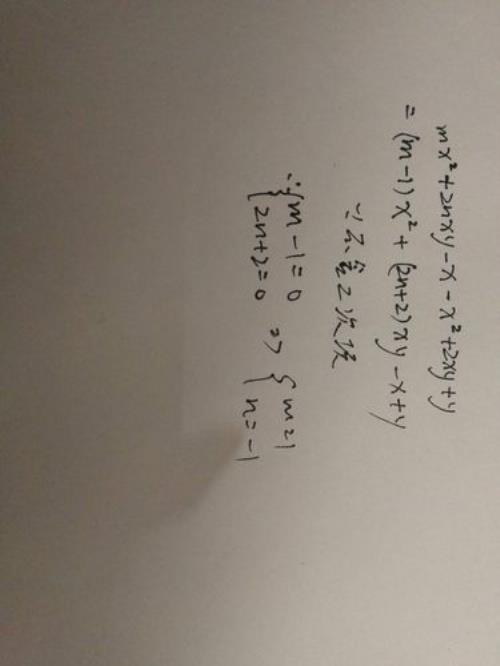 mx²+2nxy-x-x²+2xy+y
=(m-1)x²+(2n+2)xy-x+y
∵不含2次项
∴{m-1=0 ⇒ {m=1
2n+2=0 n=-1